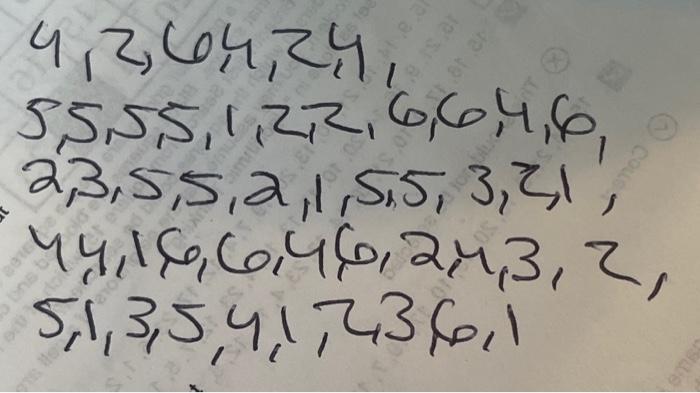 4,2,6,4,2,4,
5,5,5,5,1,2,2,6,6,4,6,
2,3,5,5,2,1,5,5,3,2,1,
4,4,1,6,6,4,6,2,4,3,2,
5,1,3,5,4,1,2,3,6,1